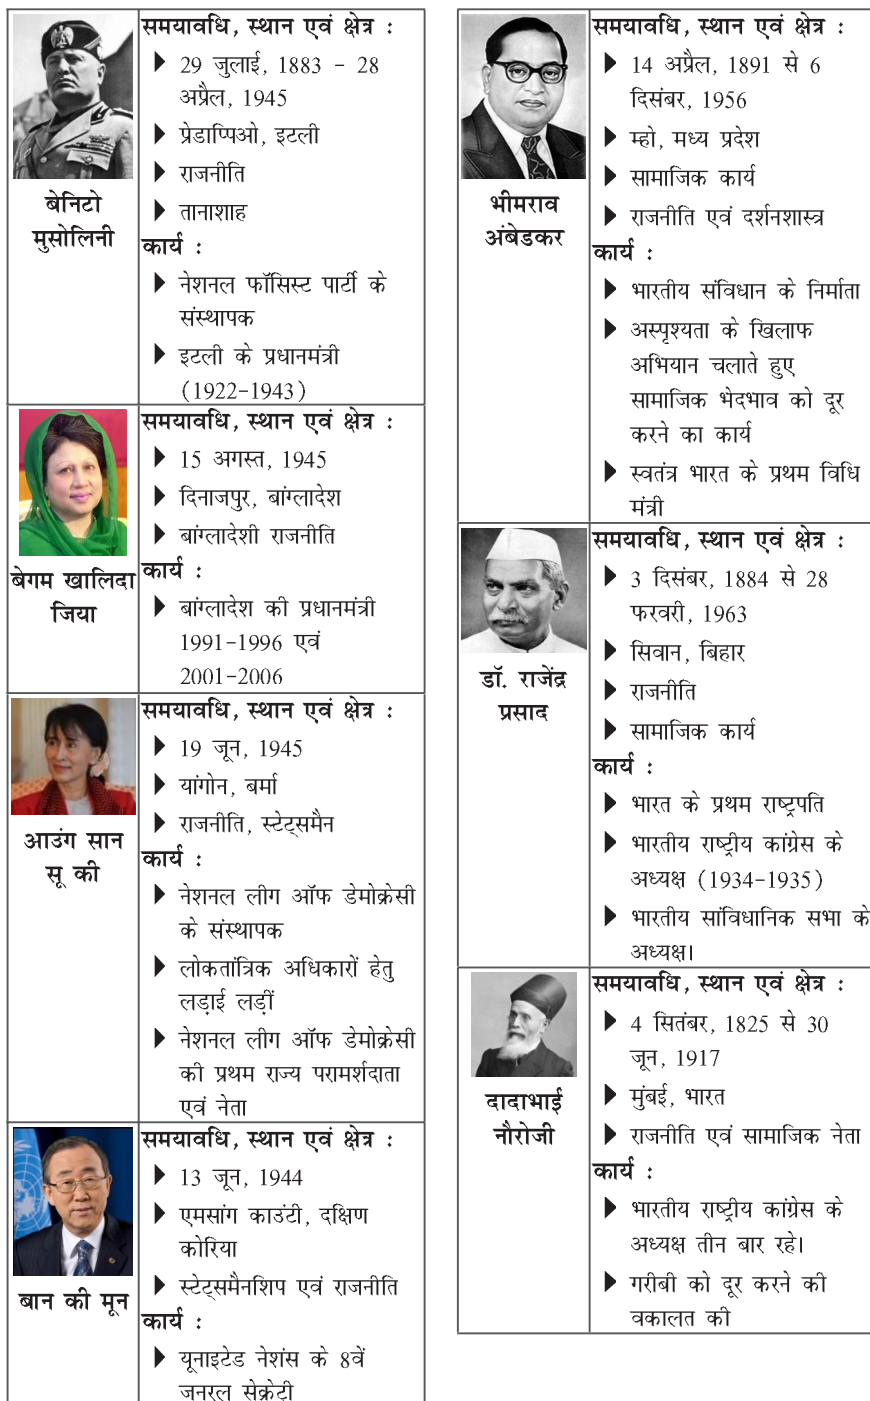 समयावधि, स्थान एवं क्षेत्र :
29 जुलाई, 1883 - 28
अप्रैल, 1945
प्रेडाप्पिओ, इटली
राजनीति
तानाशाह
बेनिटो
मुसोलिनी
कार्य :
नेशनल फॉसिस्ट पार्टी के
संस्थापक
इटली के प्रधानमंत्री
(1922-1943)
समयावधि, स्थान एवं क्षेत्र :
15 अगस्त, 1945
दिनाजपुर, बांग्लादेश
बांग्लादेशी राजनीति
बेगम खालिदा
जिया
कार्य :
बांग्लादेश की प्रधानमंत्री
1991-1996 एवं
2001-2006
समयावधि, स्थान एवं क्षेत्र :
19 जून, 1945
यांगोन, बर्मा
राजनीति, स्टेट्समैन
आउंग सान
सू की
कार्य :
नेशनल लीग ऑफ डेमोक्रेसी
के संस्थापक
लोकतांत्रिक अधिकारों हेतु
लड़ाई लड़ीं
नेशनल लीग ऑफ डेमोक्रेसी
की प्रथम राज्य परामर्शदाता
एवं नेता
समयावधि, स्थान एवं क्षेत्र :
13 जून, 1944
एमसांग काउंटी, दक्षिण
कोरिया
स्टेट्समैनशिप एवं राजनीति
बान की मून
कार्य :
यूनाइटेड नेशंस के 8वें
जनरल सेक्रेट्री
समयावधि, स्थान एवं क्षेत्र :
14 अप्रैल, 1891 से 6
दिसंबर, 1956
म्हो, मध्य प्रदेश
सामाजिक कार्य
राजनीति एवं दर्शनशास्त्र
भीमराव
अंबेडकर
कार्य :
भारतीय संविधान के निर्माता
अस्पृश्यता के खिलाफ
अभियान चलाते हुए
सामाजिक भेदभाव को दूर
करने का कार्य
स्वतंत्र भारत के प्रथम विधि
मंत्री
समयावधि, स्थान एवं क्षेत्र :
3 दिसंबर, 1884 से 28
फरवरी, 1963
सिवान, बिहार
राजनीति
सामाजिक कार्य
डॉ. राजेंद्र
प्रसाद
कार्य :
भारत के प्रथम राष्ट्रपति
भारतीय राष्ट्रीय कांग्रेस के
अध्यक्ष (1934-1935)
भारतीय सांविधानिक सभा के
अध्यक्ष।
समयावधि, स्थान एवं क्षेत्र :
4 सितंबर, 1825 से 30
जून, 1917
मुंबई, भारत
राजनीति एवं सामाजिक नेता
दादाभाई
नौरोजी
कार्य :
भारतीय राष्ट्रीय कांग्रेस के
अध्यक्ष तीन बार रहे।
गरीबी को दूर करने की
वकालत की